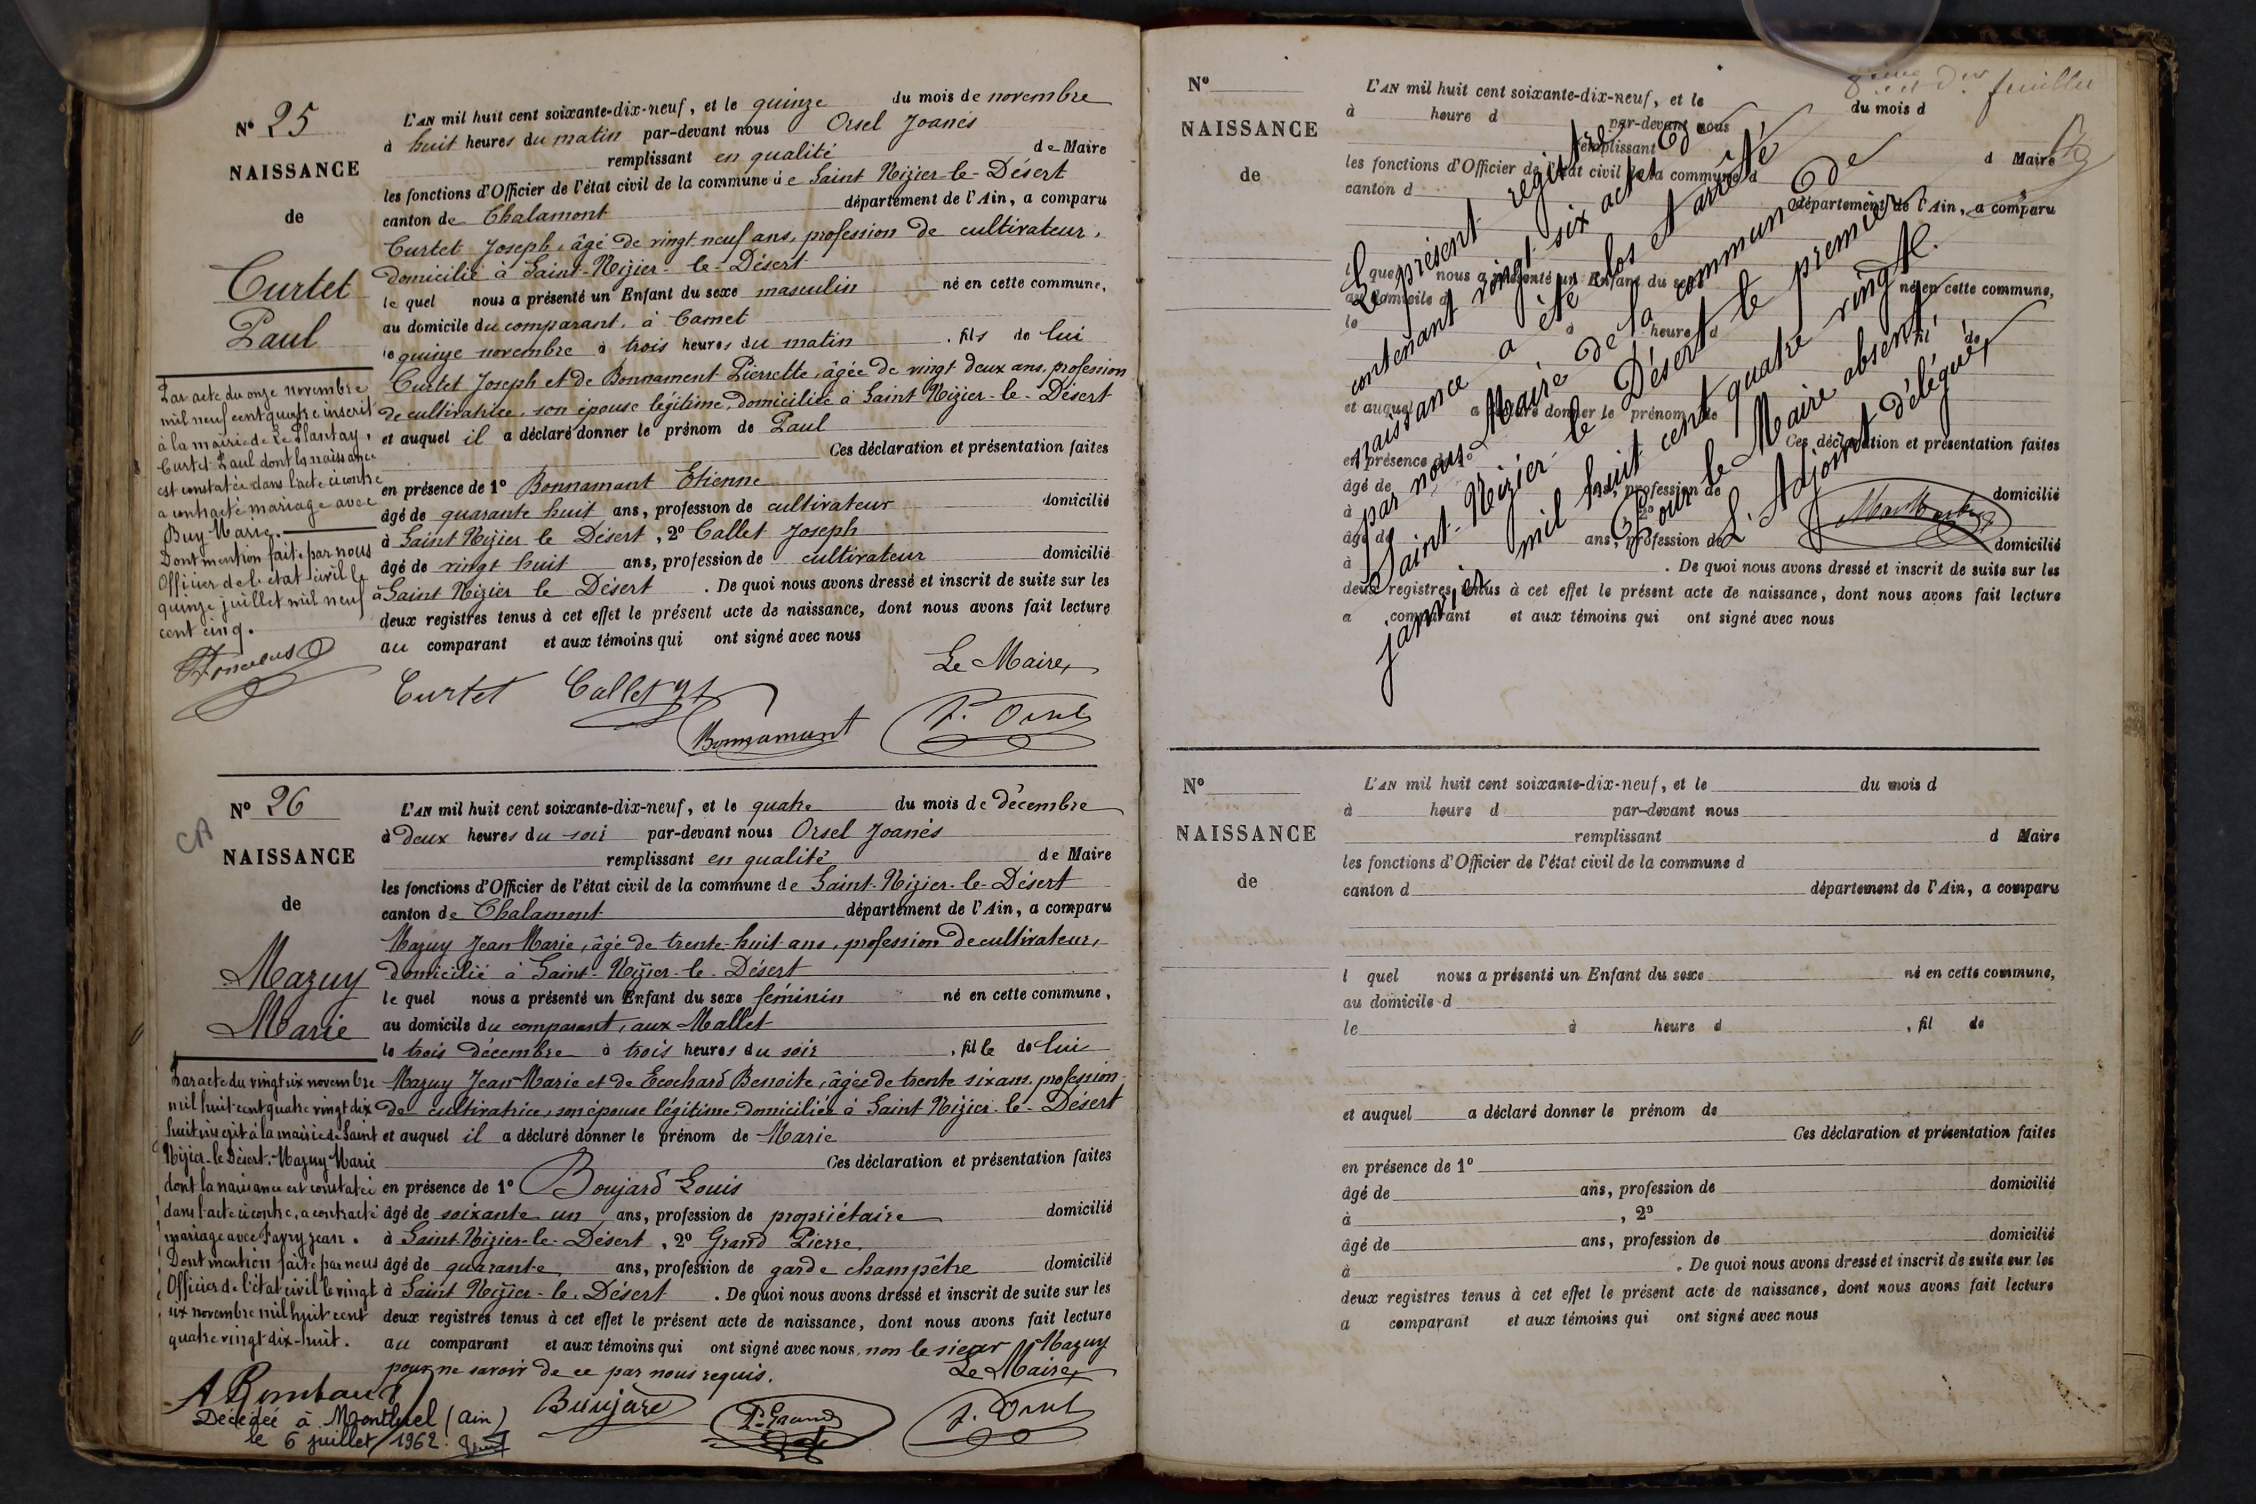 Nº 25
NAISSANCE
de
Curtet
Paul
Par acte du onze novembre
mil neuf cent quatre inscrit
à la mairie de Le Plantay,
Curtet Paul dont la naissance
est constatée dans l'acte ci contre
a contracté mariage avec
Buy Marie.
Dont mention faite par nous
Officier de l'état civil le
quinze juillet mil neuf
cent cinq.
L'AN mil huit cent soixante-dix-neuf, et le quinze du mois de novembre
à huit heures du matin par-devant nous Orsel Joanès
remplissant en qualité de Maire
les fonctions d'Officier de l'état civil de la commune de Saint Nizier-le-Désert
canton de Chalamont département de l'Ain, a comparu
Curtet Joseph, âgé de vingt neuf ans, profession de cultivateur,
domicilié à Saint-Nizier-le-Désert
le quel nous a présenté un Enfant du sexe masculin né en cette commune,
au domicile du comparant, à Camet
le quinze novembre à trois heures du matin, fils de lui
Curtet Joseph et de Bonnament Pierrette, âgée de vingt deux ans, profession
de cultivatrice, son épouse légitime, domiciliée à Saint Nizier-le-Désert
et auquel il a déclaré donner le prénom de Paul
Ces déclaration et présentation faites
en présence de 1º Bonnamant Etienne
âgé de quarante huit ans, profession de cultivateur domicilié
à Saint Nizier le Désert, 2º Callet Joseph
âgé de vingt huit ans, profession de cultivateur domicilié
à Saint Nizier le Désert. De quoi nous avons dressé et inscrit de suite sur les
deux registres tenus à cet effet le présent acte de naissance, dont nous avons fait lecture
au comparant et aux témoins qui ont signé avec nous
Le Maire,
Curtet Callet
Bonnamant J. Orsel
Nº 26
CA
NAISSANCE
de
Mazuy
Marie
Par acte du vingt six novembre
mil huit cent quatre vingt dix
huit inscrit à la mairie de Saint
Nizier-le-Désert, Mazuy Marie
dont la naissance est constatée
dans l'acte ci contre, a contracté
mariage avec Favry Jean.
Dont mention faite par nous
Officier de l'état civil le vingt
six novembre mil huit cent
quatre vingt dix-huit.
Décédée à Montluel (Ain)
le 6 juillet 1962.
L'AN mil huit cent soixante-dix-neuf, et le quatre du mois de décembre
à deux heures du soir par-devant nous Orsel Joanès
remplissant en qualité de Maire
les fonctions d'Officier de l'état civil de la commune de Saint-Nizier-le-Désert
canton de Chalamont département de l'Ain, a comparu
Mazuy Jean Marie, âgé de trente-huit ans, profession de cultivateur,
domicilié à Saint-Nizier-le-Désert
le quel nous a présenté un Enfant du sexe féminin né en cette commune,
au domicile du comparant, aux Mallet
le trois décembre à trois heures du soir, fille de lui
Mazuy Jean Marie et de Ecochard Benoite, âgée de trente six ans, profession
de cultivatrice, son épouse légitime, domiciliée à Saint Nizier-le-Désert
et auquel il a déclaré donner le prénom de Marie
Ces déclaration et présentation faites
en présence de 1º Boujard Louis
âgé de soixante un ans, profession de propriétaire domicilié
à Saint-Nizier-le-Désert, 2º Grand Pierre,
âgé de quarante ans, profession de garde champêtre domicilié
à Saint Nizier-le-Désert. De quoi nous avons dressé et inscrit de suite sur les
deux registres tenus à cet effet le présent acte de naissance, dont nous avons fait lecture
au comparant et aux témoins qui ont signé avec nous, non le sieur Mazuy
pour ne savoir de ce par nous requis.
Le Maire,
Boujard P. Grand J. Orsel
Nº
NAISSANCE
de
feuillet
L'AN mil huit cent soixante-dix-neuf, et le du mois d
à heure d par-devant nous
remplissant d Maire
les fonctions d'Officier de l'état civil de la commune d
canton d département de l'Ain, a comparu
l quel nous a présenté un Enfant du sexe né en cette commune,
au domicile d
le à heure d, fil de
et auquel a déclaré donner le prénom de
Ces déclaration et présentation faites
en présence de 1º
âgé de ans, profession de domicilié
à, 2º
âgé de ans, profession de domicilié
à. De quoi nous avons dressé et inscrit de suite sur les
deux registres tenus à cet effet le présent acte de naissance, dont nous avons fait lecture
a comparant et aux témoins qui ont signé avec nous
Le présent registre
contenant vingt-six actes de
naissance a été clos et arrêté
par nous Maire de la commune de
Saint-Nizier-le-Désert le premier
janvier mil huit cent quatre vingt.
Pour le Maire absent
L'Adjoint délégué,
Nº
NAISSANCE
de
L'AN mil huit cent soixante-dix-neuf, et le du mois d
à heure d par-devant nous
remplissant d Maire
les fonctions d'Officier de l'état civil de la commune d
canton d département de l'Ain, a comparu
l quel nous a présenté un Enfant du sexe né en cette commune,
au domicile d
le à heure d, fil de
et auquel a déclaré donner le prénom de
Ces déclaration et présentation faites
en présence de 1º
âgé de ans, profession de domicilié
à, 2º
âgé de ans, profession de domicilié
à. De quoi nous avons dressé et inscrit de suite sur les
deux registres tenus à cet effet le présent acte de naissance, dont nous avons fait lecture
a comparant et aux témoins qui ont signé avec nous